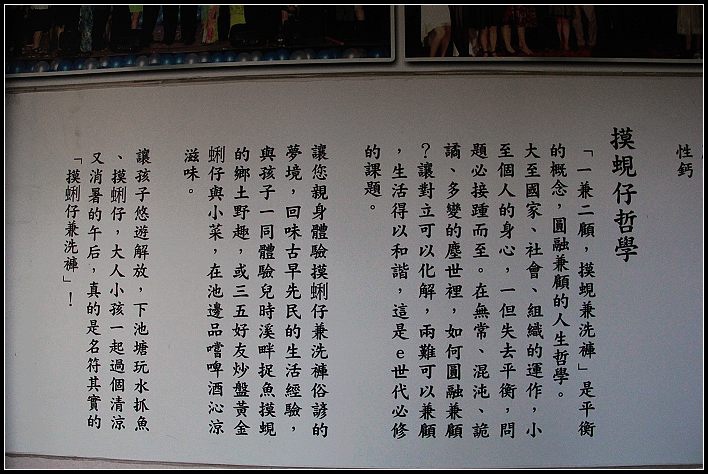 性鈣
摸蜆仔哲學
「一兼二顧，摸蜆兼洗褲」是平衡
的概念，圓融兼顧的人生哲學。
大至國家、社會、組織的運作，小
至個人的身心，一但失去平衡，問
題必接踵而至。在無常、混沌、詭
譎、多變的塵世裡，如何圓融兼顧
？讓對立可以化解，兩難可以兼顧
，生活得以和諧，這是e世代必修
的課題。
讓您親身體驗摸蜊仔兼洗褲俗諺的
夢境，回味古早先民的生活經驗，
與孩子一同體驗兒時溪畔捉魚摸蜆
的鄉土野趣，或三五好友炒盤黃金
蜊仔與小菜，在池邊品嚐啤酒沁涼
滋味。
讓孩子悠遊解放，下池塘玩水抓魚
、摸蜊仔，大人小孩一起過個清涼
又消暑的午后，真的是名符其實的
「摸蜊仔兼洗褲」！